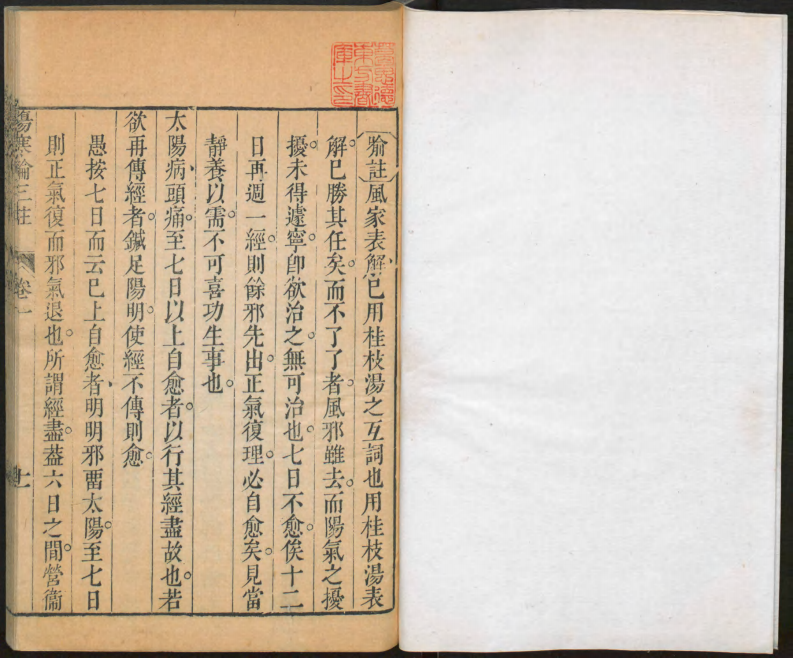 喻註風家表解已用桂枝湯之互詞也用桂枝湯表
解已勝其任矣而不了了者風邪雖去而陽氣之擾
擾未得遽寧卽欲治之無可治也七日不愈俟十二
日再週一經則餘邪先出正氣復理必自愈矣見當
靜養以需不可喜功生事也
太陽病頭痛至七日以上自愈者以行其經盡故也若
欲再傳經者鍼足陽明使經不傳則愈
愚按七日而云已上自愈者明明邪畱太陽至七日
則正氣復而邪氣退也所謂經盡葢六日之間營衞
傷寒論三註 卷一